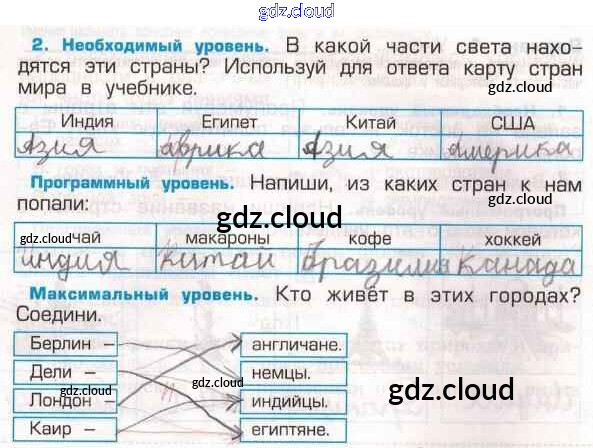 gdz.cloud
2. Необходимый уровень. В какой части света нахо-
дятся эти страны? Используй для ответа карту стран
мира в учебнике.
gdz.cloud
Индия Египет Китай США
Азия аврика Азия америка
Программный уровень. Напиши, из каких стран к нам
попали:
gdz.cloud gdz.cloud
gdz.cloud чай макароны кофе хоккей
индия китай бразилия канада
Максимальный уровень. Кто живёт в этих городах?
Соедини.
Берлин – англичане.
Дели – немцы.
gdz.cloud gdz.cloud
Лондон – индийцы.
Каир – египтяне.
gdz.cloud